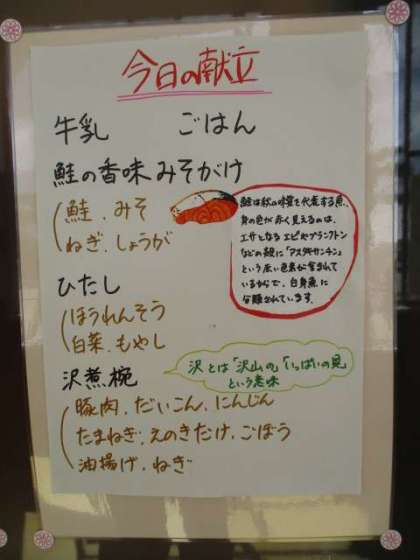 今日の献立
牛乳 ごはん
鮭の香味みそがけ
鮭、みそ
ねぎ、しょうが
鮭は秋の味覚を代表する魚、
身の色が赤く見えるのは、
エサとなるエビやプランクトン
などの殻に「アスタキサンチン」
という赤い色素が含まれて
いるからで、白身魚に
分類されています。
ひたし
ほうれんそう
白菜、もやし
沢煮椀
沢とは「沢山の」「いっぱいの具」
という意味
豚肉、だいこん、にんじん
たまねぎ、えのきたけ、ごぼう
油揚げ、ねぎ